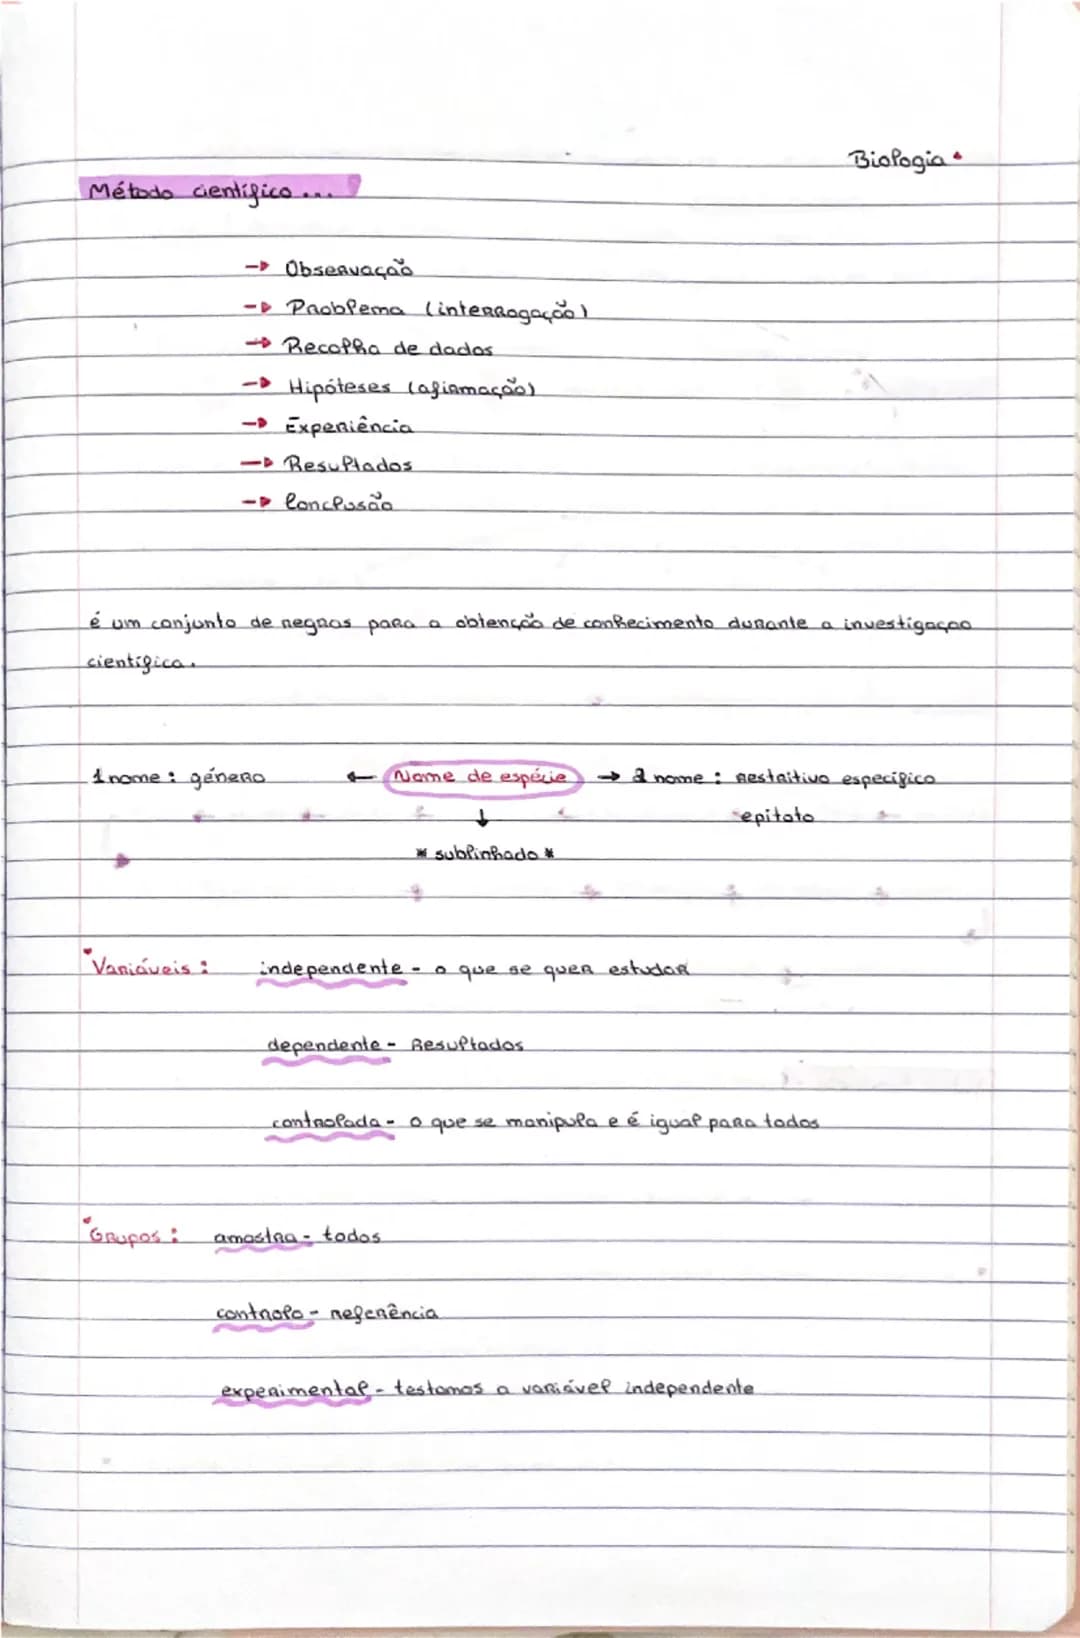 Biologia
Método científico ...
→ Observação
→ Problema (interrogação)
→ Recolha de dados
→ Hipóteses (afirmação)
→ Experiência
→ Resultados
→ Conclusão
é um conjunto de regras para a obtenção de conhecimento durante a investigação
científica.
1 nome : género ← Nome de espécie → 2 nome : restritivo específico
epitoto
↓
* sublinhado *
Variáveis : independente - o que se quer estudar
dependente - Resultados
controlada - o que se manipula e é igual para todos
Grupos : amostra - todos
controlo - referência
experimental - testamos a variável independente